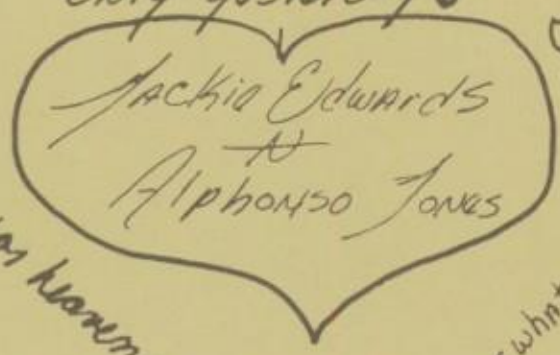 Jackie Edwards
N
Alphonso Jones
heaven
what